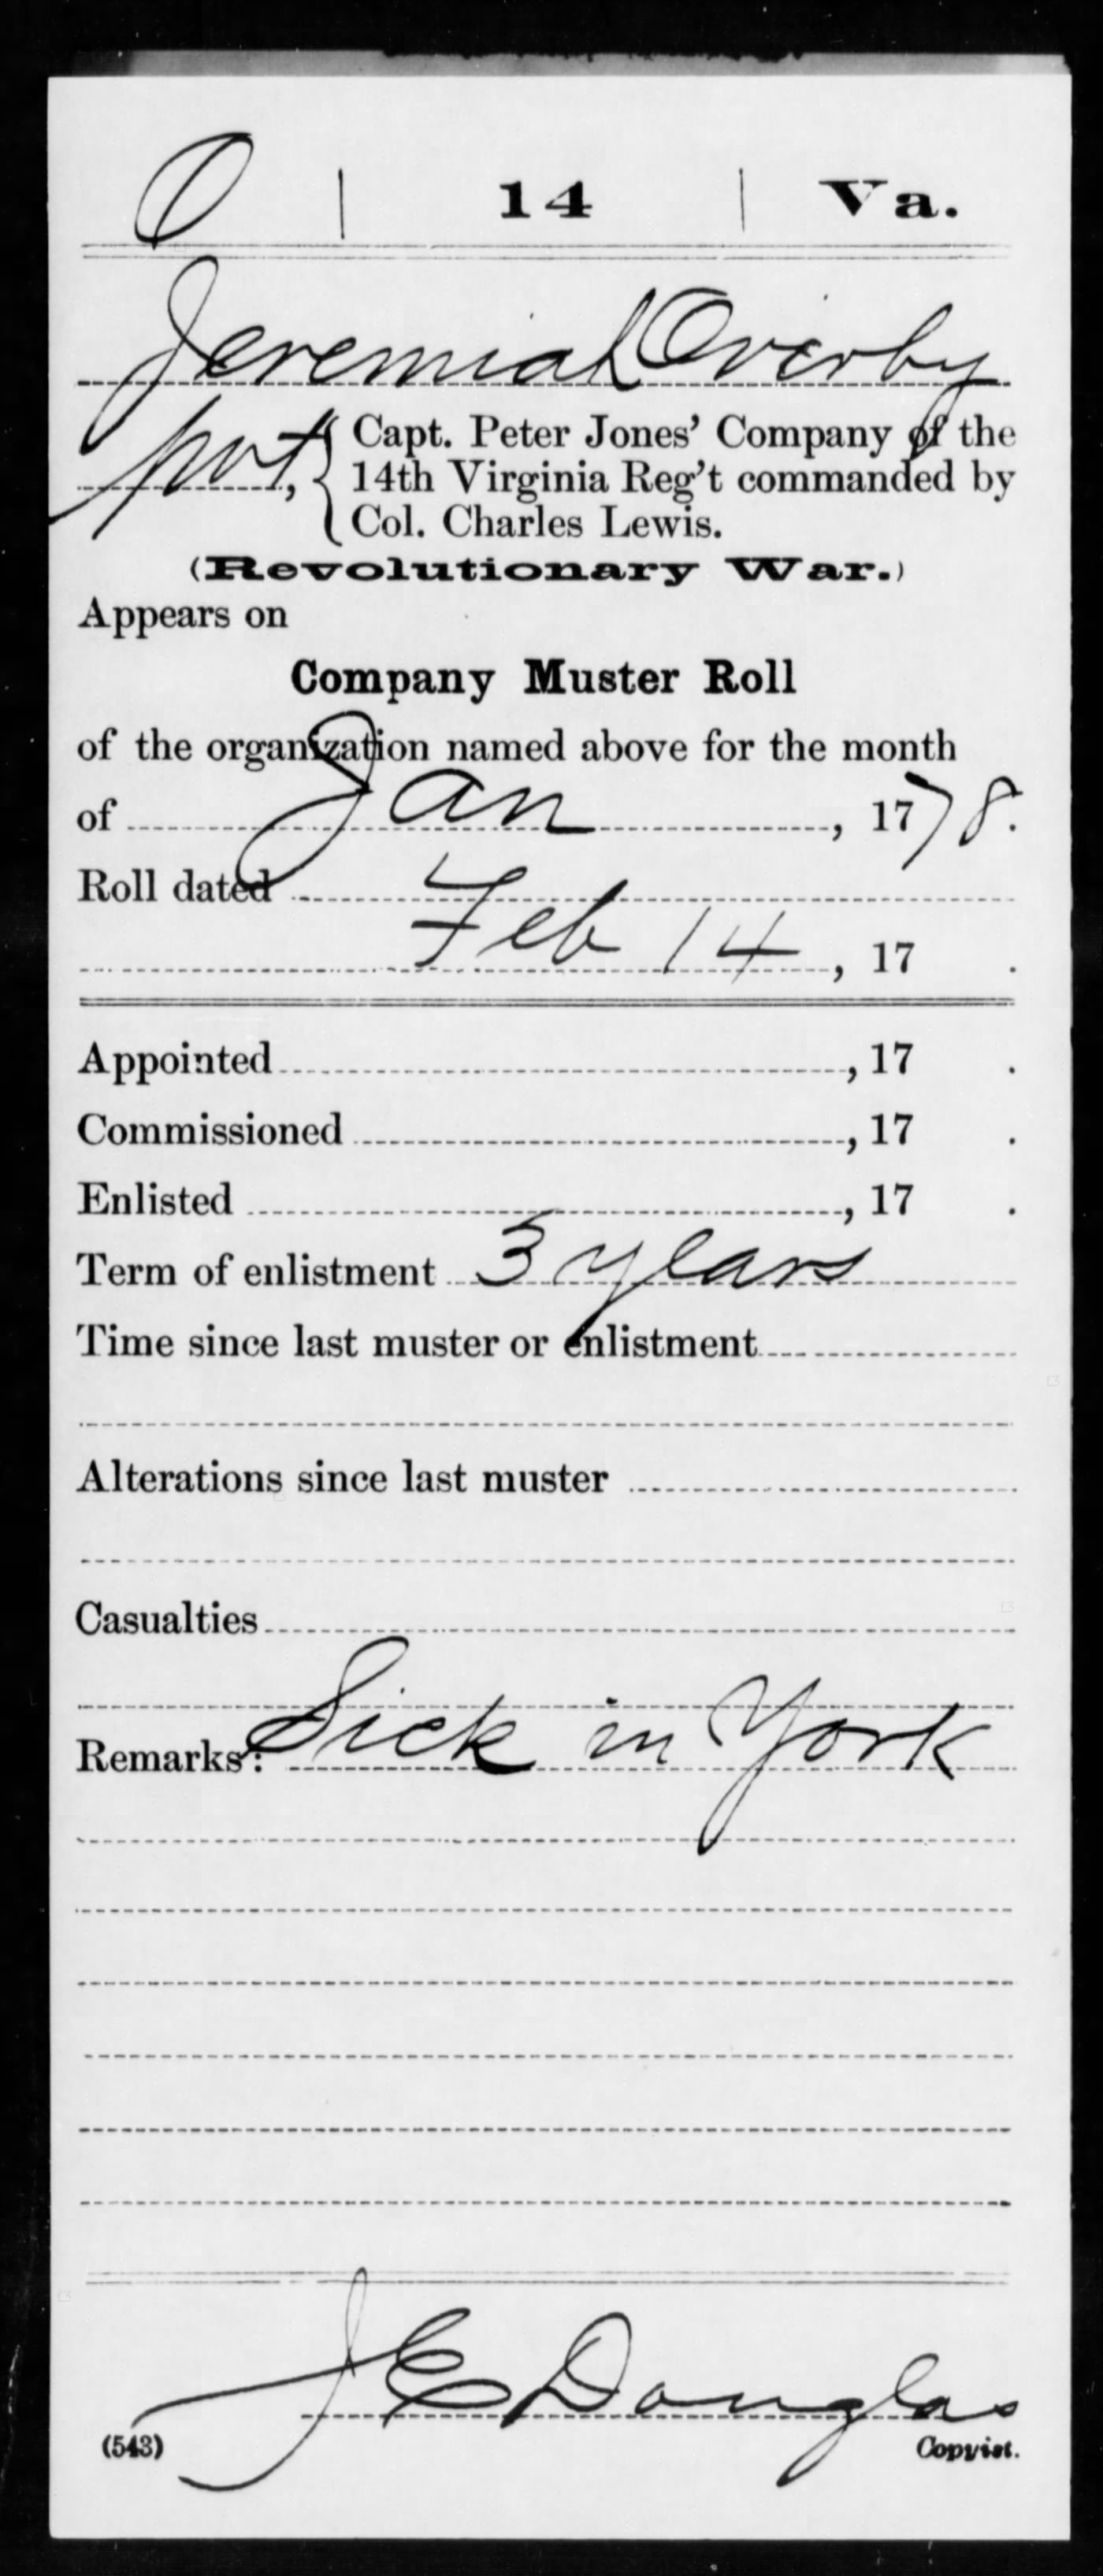 O | 14 | Va.
Jeremiah Overby
pvt, { Capt. Peter Jones' Company of the
14th Virginia Reg't commanded by
Col. Charles Lewis.
(Revolutionary War.)
Appears on
Company Muster Roll
of the organization named above for the month
of Jan, 1778.
Roll dated
Feb 14, 17 .
Appointed , 17 .
Commissioned , 17 .
Enlisted , 17 .
Term of enlistment 3 years
Time since last muster or enlistment
Alterations since last muster
Casualties
Remarks: Sick in York
J E Douglas
(543) Copyist.